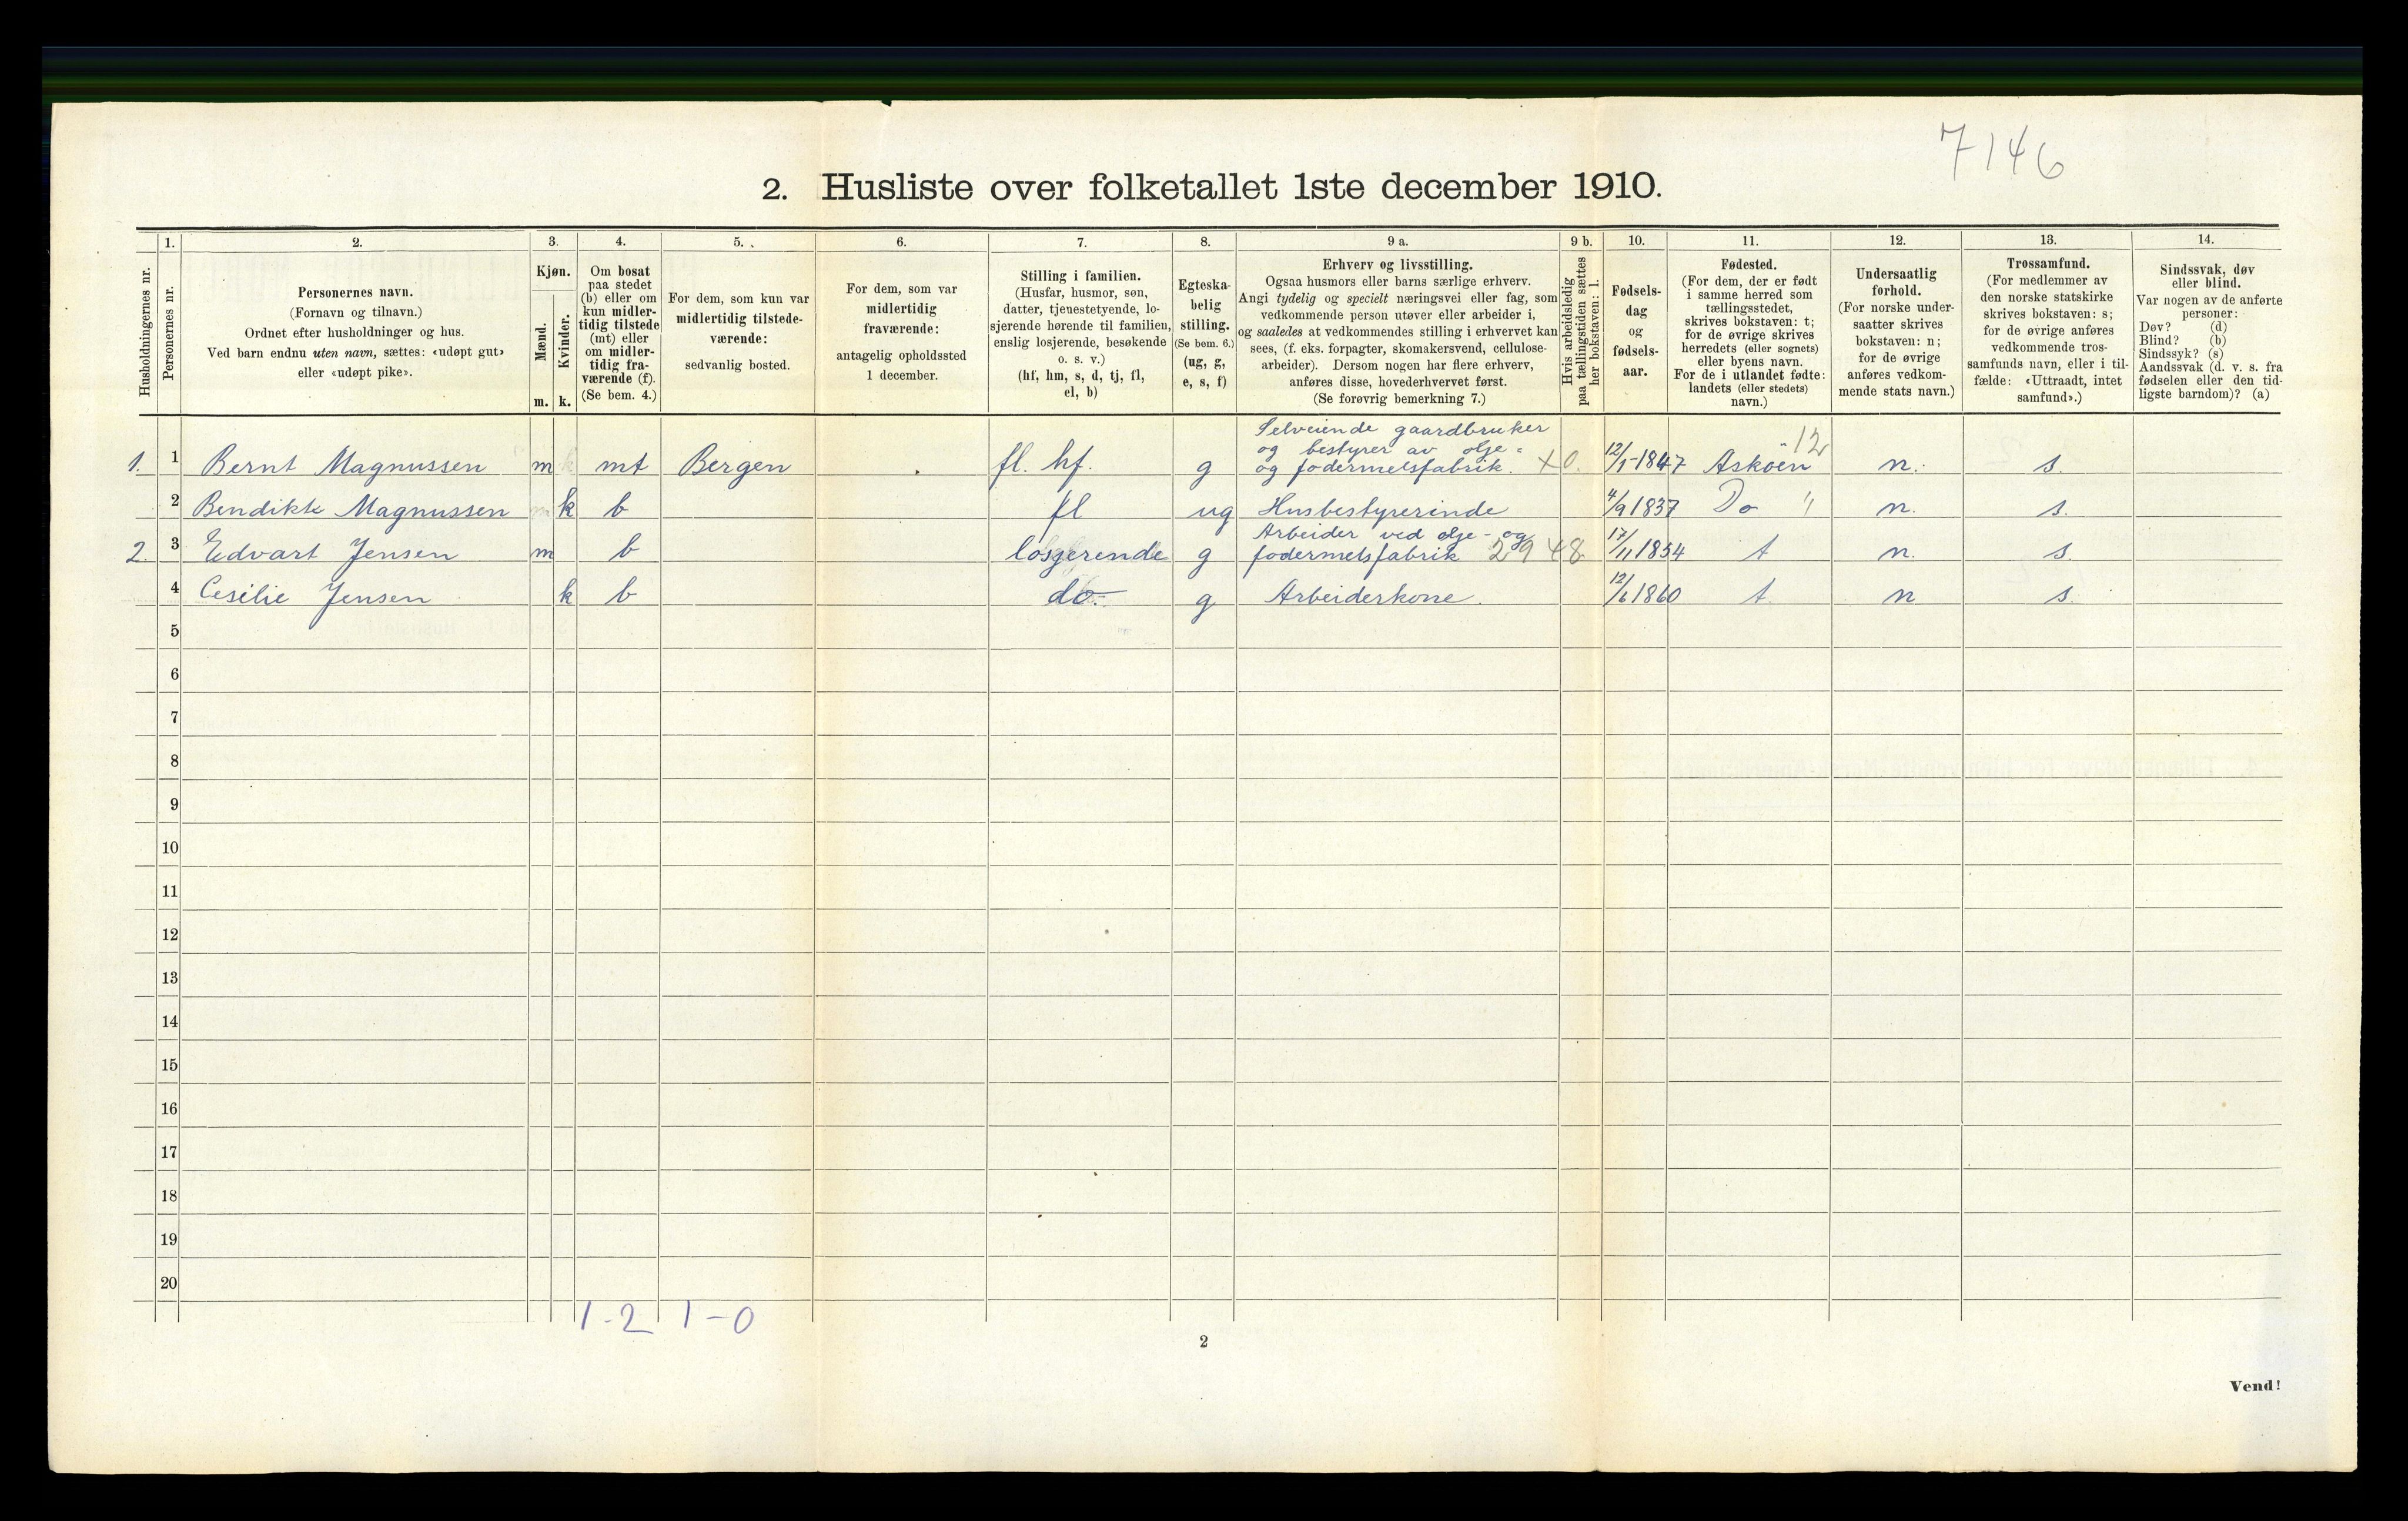 7146
2. Husliste over folketallet 1ste december 1910.
Husholdningernes nr.
1.
Personernes nr.
2.
Personernes navn.
(Fornavn og tilnavn.)
Ordnet efter husholdninger og hus.
Ved barn endnu uten navn, sættes: «udøpt gut»
eller «udøpt pike».
3.
Kjøn.
Mænd.
Kvinder.
m. k.
4.
Om bosat
paa stedet
(b) eller om
kun midler-
tidig tilstede
(mt) eller
om midler-
tidig fra-
værende (f).
(Se bem. 4.)
5.
For dem, som kun var
midlertidig tilstede-
værende:
sedvanlig bosted.
6.
For dem, som var
midlertidig
fraværende:
antagelig opholdssted
1 december.
7.
Stilling i familien.
(Husfar, husmor, søn,
datter, tjenestetyende, lo-
sjerende hørende til familien,
enslig losjerende, besøkende
o. s. v.)
(hf, hm, s, d, tj, fl,
el, b)
8.
Egteska-
belig
stilling.
(Se bem. 6.)
(ug, g,
e, s, f)
9 a.
Erhverv og livsstilling.
Ogsaa husmors eller barns særlige erhverv.
Angi tydelig og specielt næringsvei eller fag, som
vedkommende person utøver eller arbeider i,
og saaledes at vedkommendes stilling i erhvervet kan
sees, (f. eks. forpagter, skomakersvend, cellulose-
arbeider). Dersom nogen har flere erhverv,
anføres disse, hovederhvervet først.
(Se forøvrig bemerkning 7.)
9 b.
Hvis arbeidsledig
paa tællingstiden sættes
her bokstaven: l.
10.
Fødsels-
dag
og
fødsels-
aar.
11.
Fødested.
(For dem, der er født
i samme herred som
tællingsstedet,
skrives bokstaven: t;
for de øvrige skrives
herredets (eller sognets)
eller byens navn.
For de i utlandet fødte:
landets (eller stedets)
navn.)
12.
Undersaatlig
forhold.
(For norske under-
saatter skrives
bokstaven: n;
for de øvrige
anføres vedkom-
mende stats navn.)
13.
Trossamfund.
(For medlemmer av
den norske statskirke
skrives bokstaven: s;
for de øvrige anføres
vedkommende tros-
samfunds navn, eller i til-
fælde: «Uttraadt, intet
samfund».)
14.
Sindssvak, døv
eller blind.
Var nogen av de anførte
personer:
Døv? (d)
Blind? (b)
Sindssyk? (s)
Aandssvak (d. v. s. fra
fødselen eller den tid-
ligste barndom)? (a)
Selveiende gaardbruker
og bestyrer av olje-
1. 1 Bernt Magnussen m mt Bergen fl. hf. g og fodermelsfabrik. x0. 12/1-1847 Askøen 12 n. s.
2 Bendikte Magnussen k b fl ug Husbestyrerinde 4/9 1837 Do " n. s.
Arbeider ved olje- og
2. 3 Edvart Jensen m b losgerende g fodermelsfabrik 2948 17/11 1854 t n. s.
4 Cesilie Jensen k b do.- g Arbeiderkone. 12/6 1860 t. n s.
5
6
7
8
9
10
11
12
13
14
15
16
17
18
19
20
1-2 1-0
2
Vend!